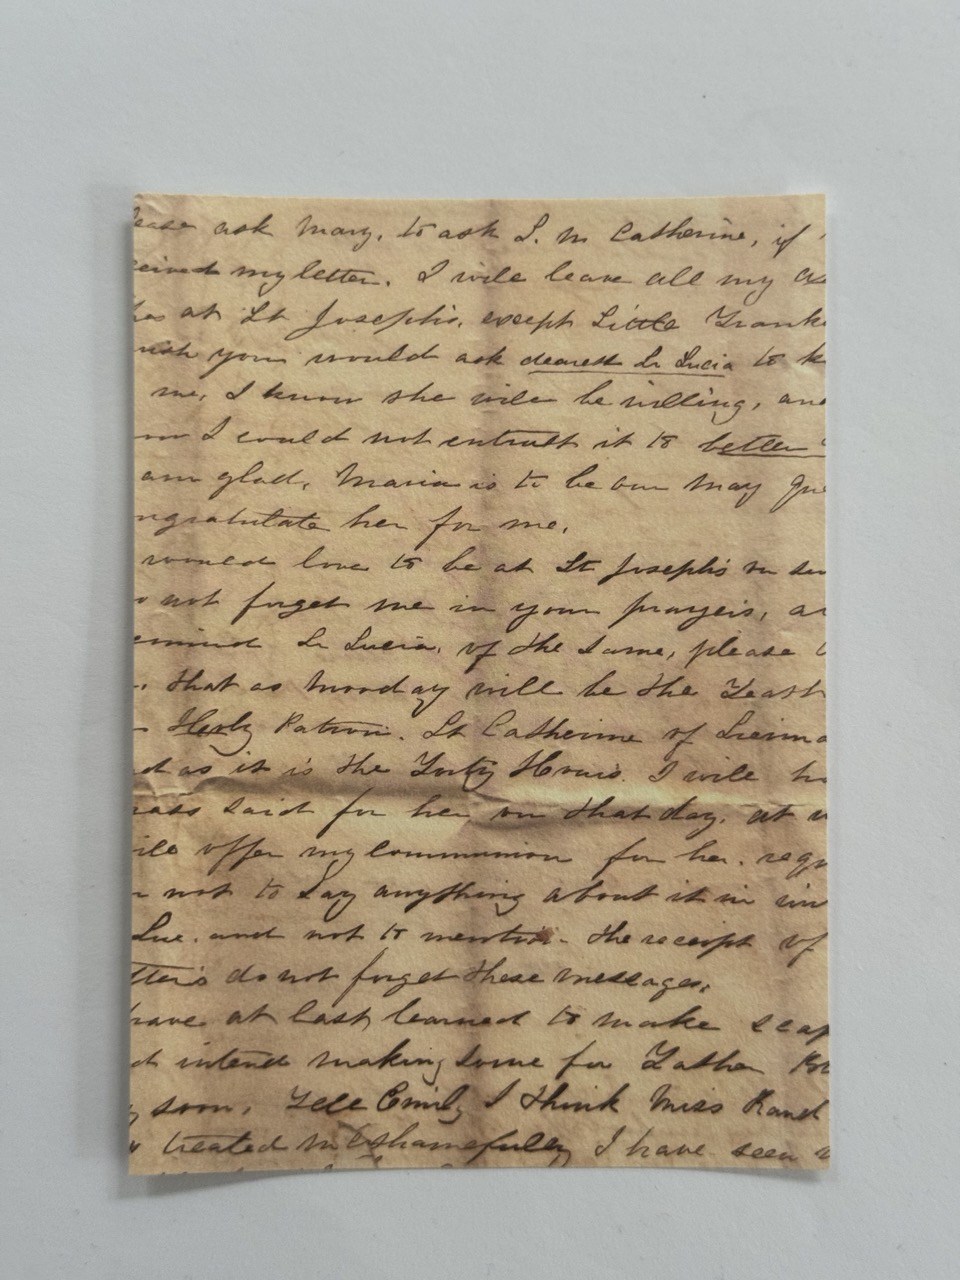 ease ask Mary, to ask S. M Catherine, if
ceived my letter. I will leave all my
at St Joseph's, except Little Frank
ish you would ask dearest Sr Lucia to k
me, I know she will be willing, and
I could not entrust it to better
am glad, Maria is to be our May Que
ngratulate her for me.
would love to be at St Joseph's
not forget me in your prayers, an
emind Sr Lucia, of the same, please
that as Monday will be the Feast
Holy Patron. St Catherine of Sienna
d as it is the Forty Hours. I will ha
mass said for her on that day. at
ile offer my communion for her. requ
not to say anything about it in
Luc. and not to mention the receipt of
tters do not forget these messages.
have at last learned to make scap
d intend making some for Father
soon. Tell Emily I think Miss Rand
treated me shamefully I have seen